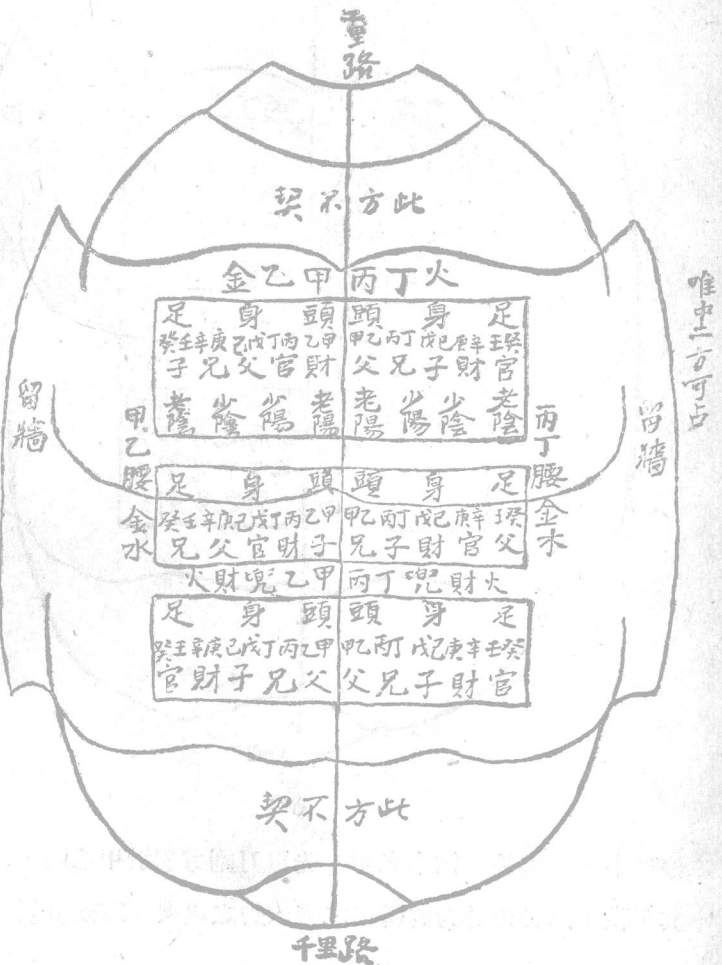 千里路
此方不契
火丁丙甲乙金
唯中二方可占
足 身 頭 頭 身 足
癸壬辛庚己戊丁丙乙甲 甲乙丙丁戊己庚辛壬癸
官財子兄父 財官父兄子
老陰 少陰 少陽 老陽 老陽 少陽 少陰 老陰
留牆
丙丁腰金水
甲乙腰金水
留牆
足 身 頭 頭 身 足
癸壬辛庚己戊丁丙乙甲 甲乙丙丁戊己庚辛壬癸
父官財子兄 子財官父兄
火財兜丁丙甲乙兜財火
足 身 頭 頭 身 足
癸壬辛庚己戊丁丙乙甲 甲乙丙丁戊己庚辛壬癸
官財子兄父 父兄子財官
此方不契
千里路